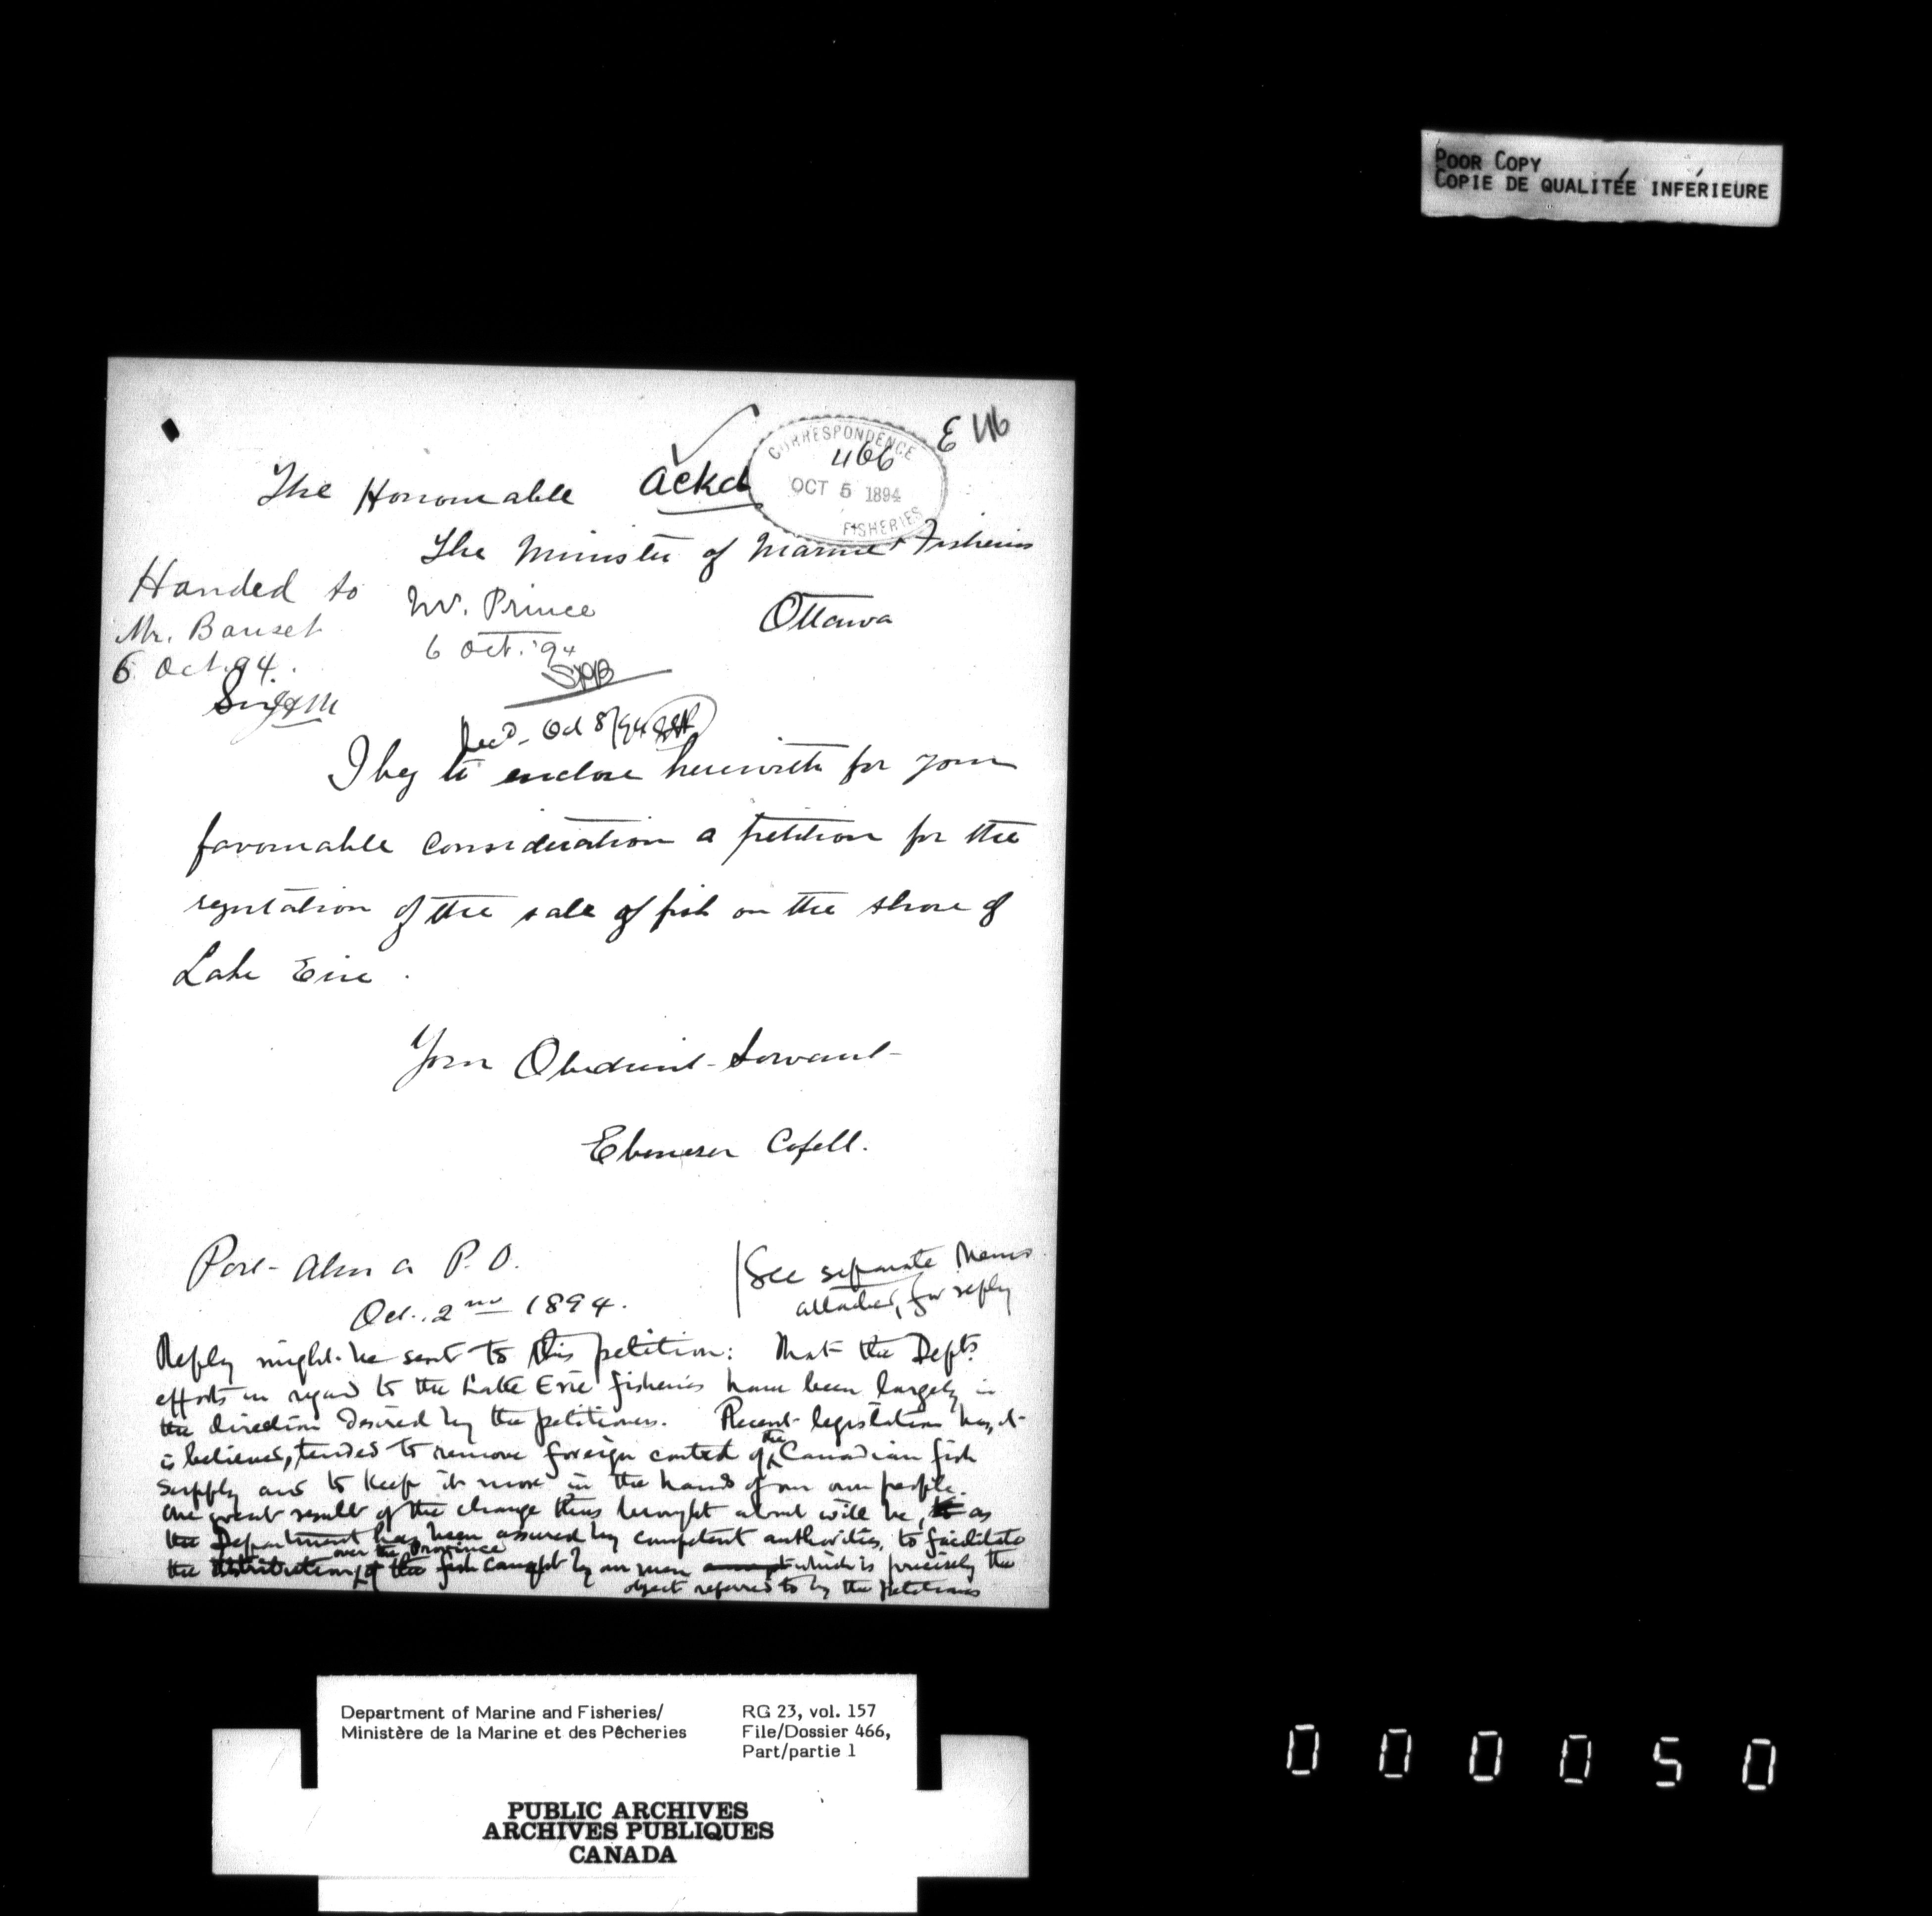 POOR COPY
COPIE DE QUALITÉE INFÉRIEURE
E 416
CORRESPONDENCE
466
OCT 5 1894
FISHERIES
The Honourable Ackd
The Minister of Marine & Fisheries
Ottawa
Handed to
Mr. Bauset
6 Oct. 94.
Mr. Prince
6 Oct. '94
Sir
Recd. Oct 8/94
I beg to enclose herewith for your
favourable consideration a petition for the
regulation of the sale of fish on the shore of
Lake Erie.
Your Obedient Servant
Ebenezer Cofell.
Port Alma P.O.
Oct. 2nd 1894.
See separate Memo
attached, for reply
Reply might be sent to this petition: That the Dept's
efforts in regard to the Lake Erie fisheries have been largely in
the direction desired by the petitioners. Recent legislation has, it
is believed, tended to remove foreign control of the Canadian fish
supply and to keep it more in the hands of our own people.
One great result of the change thus brought about will be, as
the Department has been assured by competent authorities, to facilitate
the distribution over the Province of the fish caught by our men which is precisely the
object referred to by the Petitioners
Department of Marine and Fisheries/
Ministère de la Marine et des Pêcheries
RG 23, vol. 157
File/Dossier 466,
Part/partie 1
PUBLIC ARCHIVES
ARCHIVES PUBLIQUES
CANADA
000050